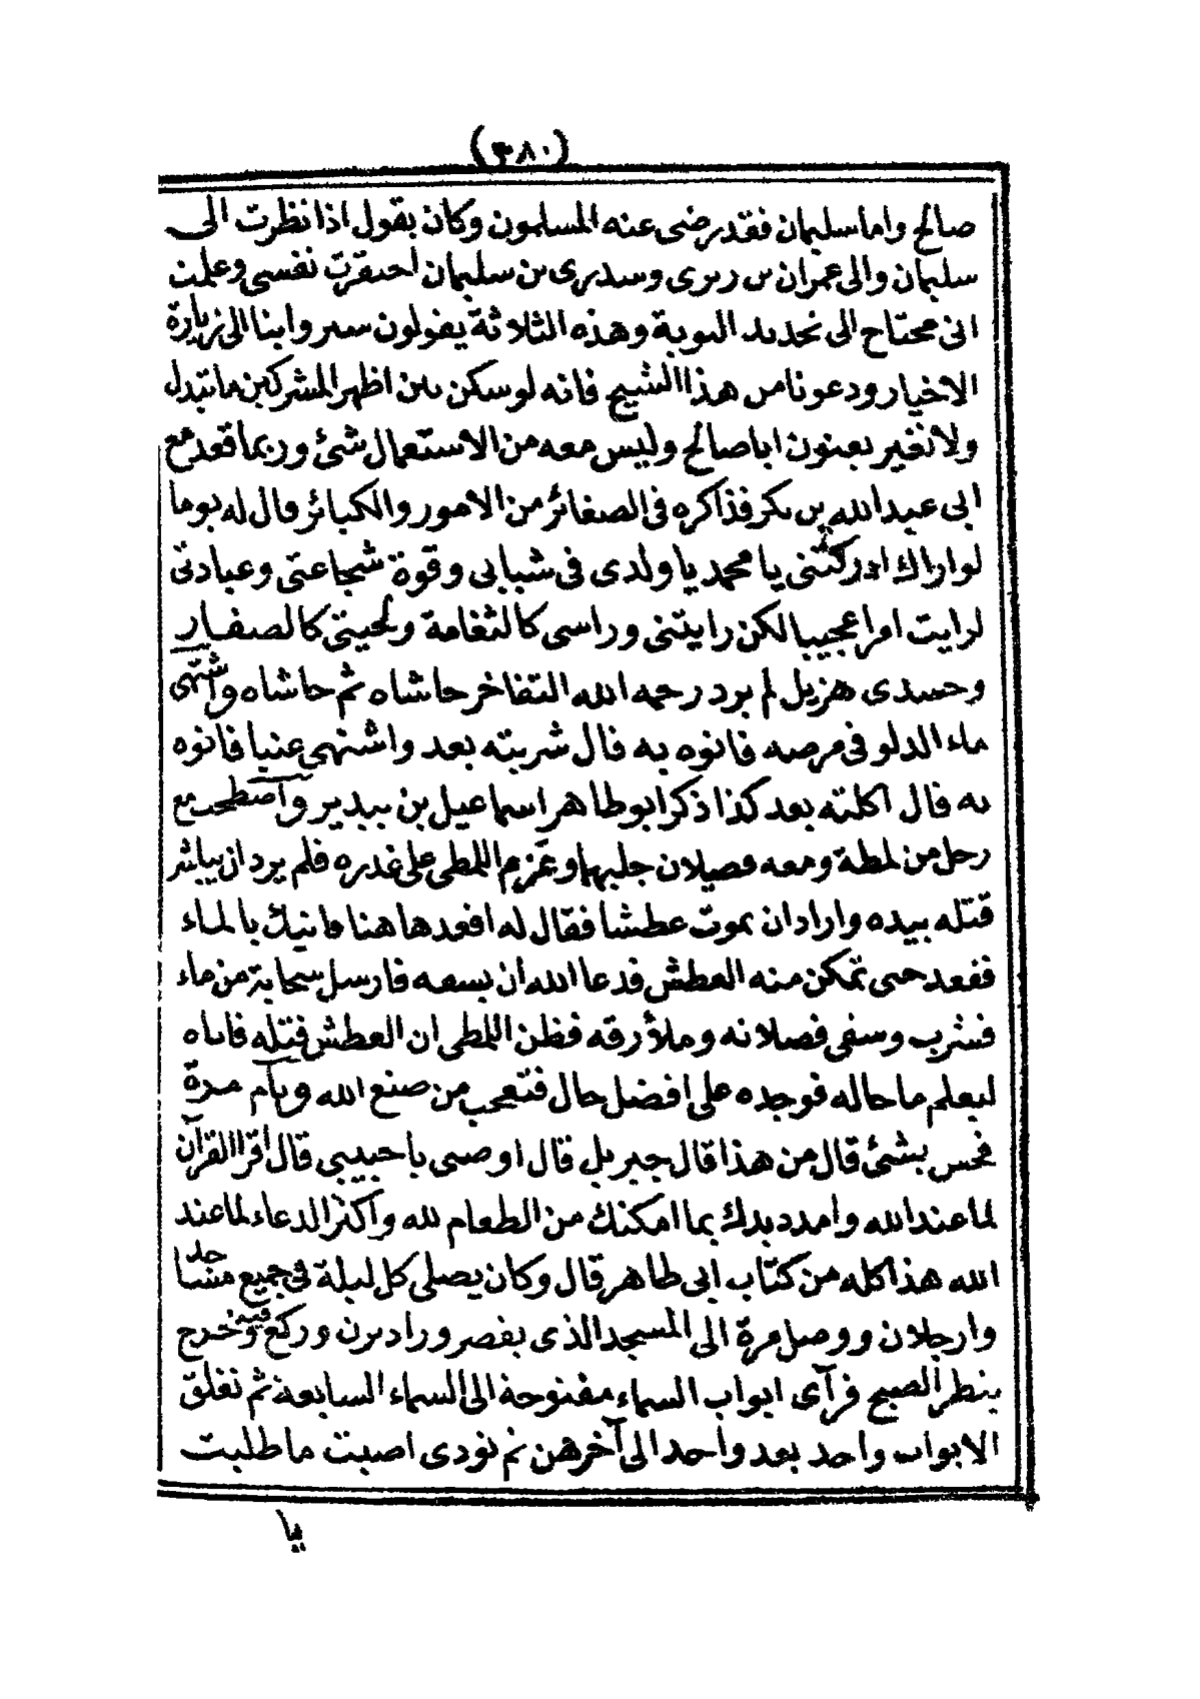 (٣٨٠)
صالح واما سليمان فقد رضى عنه المسلمون وكان يقول اذا نظرت الى
سليمان والى عمران بن زيرى وسدرى بن سليمان احتقرت نفسى وعلمت
انى محتاج الى تجديد التوبة وهذه الثلاثة يقولون سيروا بنا الى زيارة
الاخيار ودعونا من هذا الشيخ فانه لو سكن بين اظهر المشركين ما تبدل
ولا تغير يعنون ابا صالح وليس معه من الاستعمال شئ وربما قعد مع
ابى عبد الله بن بكر فذاكره فى الصغائر من الامور والكبائر قال له يوما
لو اراك ادركتنى يا محمد يا ولدى فى شبابى وقوة شجاعتى وعبادتى
لرايت امرا عجيبا لكن رايتنى وراسى كالثغامة ولحيتى كالصفار
وحسدى هزيل لم يرد رحمه الله التفاخر حاشاه ثم حاشاه واشتهى
ماء الدلو فى مرضه فاتوه به قال شربته بعد واشتهى عنبا فاتوه
به قال اكلته بعد كذا ذكر ابو طاهر اسماعيل بن ييدير واصطحب مع
رجل من لمطة ومعه فصيلان جلبهما وعزم اللمطى على غدره فلم يرد ان يباشر
قتله بيده واراد ان يموت عطشا فقال له اقعد هاهنا فانيك بالماء
فقعد حتى تمكن منه العطش فدعا الله ان يسقه فارسل سحابة من ماء
فشرب وسقى فصلانه وملأ زقه فظن اللمطى ان العطش قتله فاتاه
ليعلم ما حاله فوجده على افضل حال فتعجب من صنع الله ونام مرة
فحس بشئ قال من هذا قال جبريل قال اوصنى يا حبيبى قال اقرا القرآن
لما عند الله وامدد يدك بما امكنك من الطعام لله واكثر الدعاء لما عند
الله هذا كله من كتاب ابى طاهر قال وكان يصلى كل ليلة فى جميع مشاجد
وارجلان ووصل مرة الى المسجد الذى بقصر وراديرن وركع فيه وخرج
ينظر الصبح فرآى ابواب السماء مفتوحة الى السماء السابعة ثم تغلق
الابواب واحد بعد واحد الى آخرهن ثم نودى اصبت ما طلبت
يا